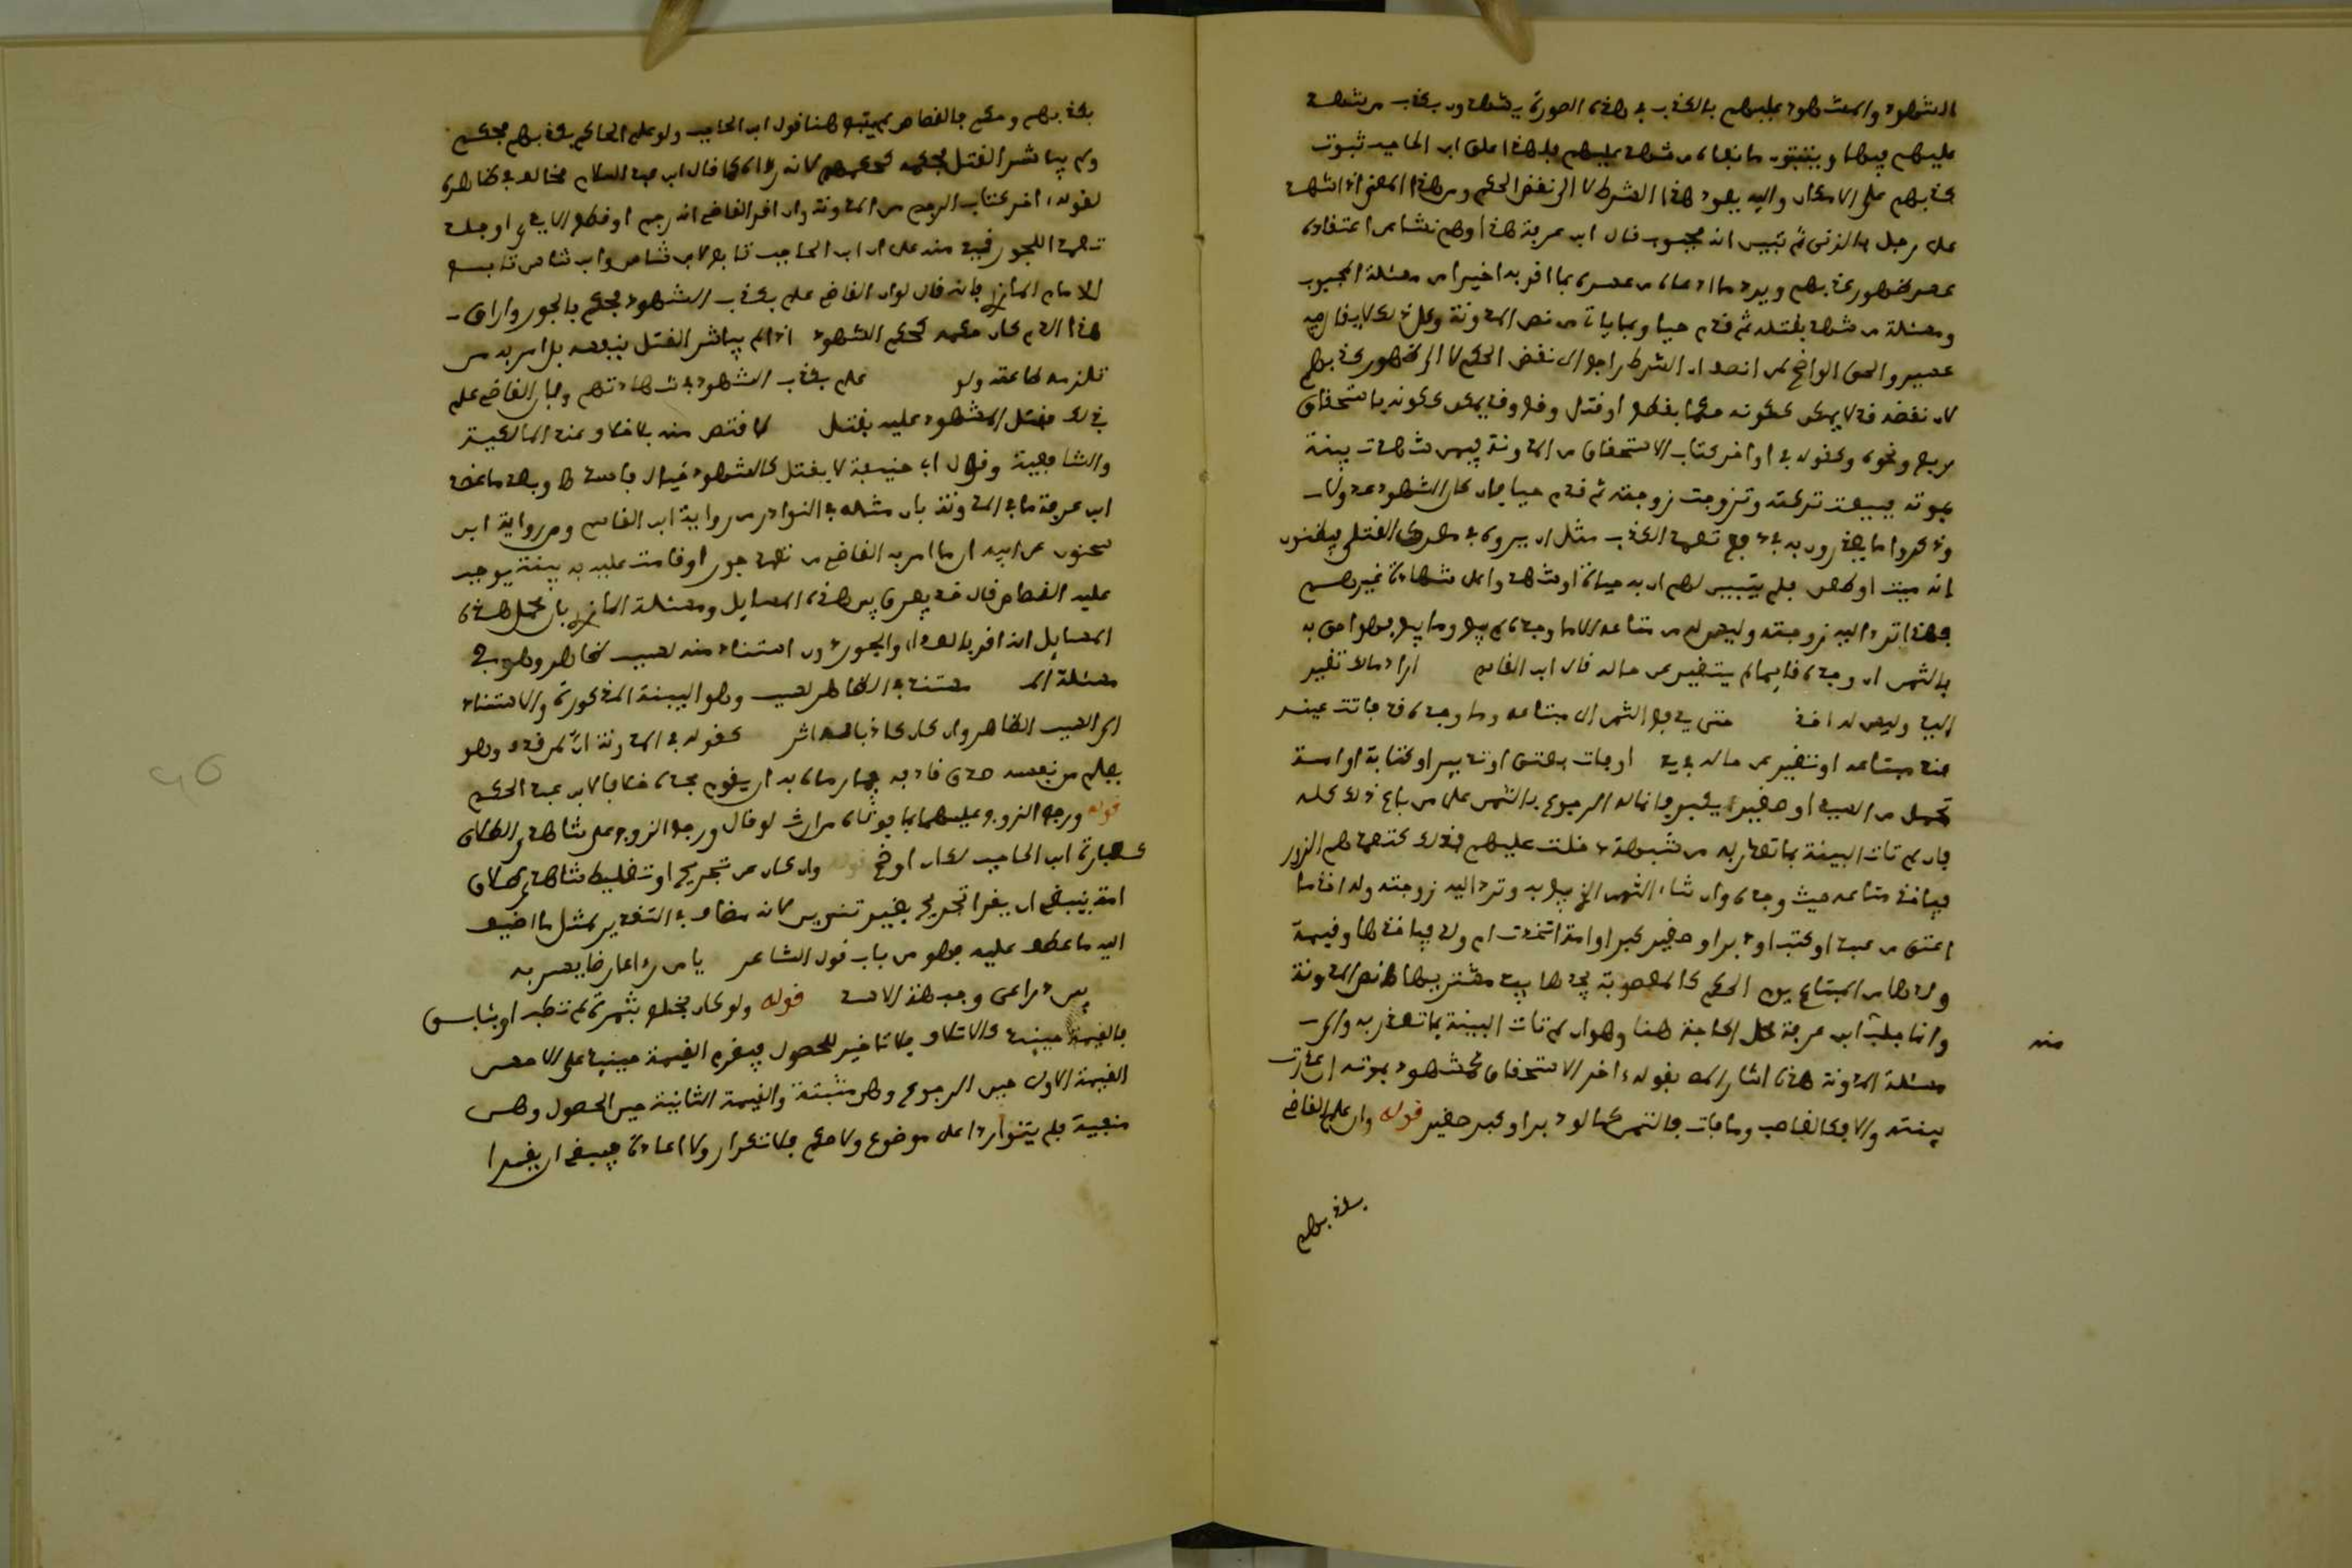 الشهود والمشهود عليهم بالكذب في هذه الصورة يشهدون بكذب من شهد
عليهم فيها ويثبتون ما نفاه من شهد عليهم فلهذا علق ابن الحاجب ثبوت
كذبهم على الامكان واليه يعود هذا الشرط لا الى نقض الحكم ومن هذا المعنى اذا شهد
على رجل بالزنى ثم تبين انه مجبوب قال ابن عرفة هذا وهم نشا من اعتقاده
عسر ظهور كذبهم ويرد ما ادعاه من عسره بما اقر به اخيرا من مسئلة المجبوب
ومسئلة من شهد بقتله ثم قدم حيا وبما ياتي من نص المدونة وكل ذلك لا يقال فيه
عسير والحق الواضح لمن انصف ان الشرط راجع الى نقض الحكم لا الى ظهور كذبهم
لان نقضه قد لا يمكن ككونه حكما بقطع او قتل وقع وقد يمكن ككونه باستحقاق
ربع ونحوه وكقوله في اواخر كتاب الاستحقاق من المدونة فيمن شهدت بينة
بموته فبيعت تركته وتزوجت زوجته ثم قدم حيا فان كان الشهود عدولا
وذكروا ما يعذرون به في دفع تعمد الكذب مثل ان يروه في صرعى القتلى فيظنون
انه ميت او طعن فلم يتبين لهم ان به حياة او شهدوا على شهادة غيرهم
فهذا ترد اليه زوجته وليس له من متاعه الا ما وجده لم يبع وما بيع فهو احق به
بالثمن ان وجده قايما لم يتغير عن حاله قال ابن القاسم اراد مالا تغير
البيع وليس له اخذه حتى يدفع الثمن الى مبتاعه وما وجده قد فاتت عينه
عند مبتاعه او تغير عن حاله في يديه او فات بعتق او تدبير او كتابة او امة
تحمل من السيد او صغير يكبر فانما له الرجوع بالثمن على من باع ذلك كله
فان لم تات البينة بما تعذر به من شبهة دخلت عليهم فذلك كتعمدهم الزور
فياخذ متاعه حيث وجده وان شاء الثمن الذي بيع به وترد اليه زوجته وله اخذ ما
اعتق من عبد او كتب او دبر او صغير كبر او امة اتخذت ام ولد فياخذها وقيمة
ولدها من المبتاع يوم الحكم كالمغصوبة يجدها بيد مشتريها نص المدونة
وانما جلب ابن عرفة محل الحاجة هنا وهو ان لم تات البينة بما تعذر به والى
مسئلة المدونة هذه اشار المص بقوله اخر الاستحقاق كمشهود بموته ان عذرت
بينته والا فكالغاصب وما فات فالثمن كما لو دبر او كبر صغير قوله وان علم القاضي
منه
بكذبهم
بكذبهم وحكم فالقصاص لم يتبع هنا قول ابن الحاجب ولو علم الحاكم بكذبهم فحكم
ولم يباشر القتل فحكمه كحكمهم لانه راى كما قال ابن عبد السلام مخالف في ظاهره
لقوله اخر كتاب الرجم من المدونة وان اقر القاضي انه رجم او قطع الايدي او جلد
تعمدا للجور اقيد منه على ان ابن الحاجب تابع لابن شاس وابن شاس تابع
للامام المازري فانه قال لو ان القاضي علم بكذب الشهود فحكم بالجور واراق
هذا الدم كان حكمه كحكم الشهود اذا لم يباشر القتل بنفسه بل امر به من
تلزمه طاعته ولو علم بكذب الشهود في شهادتهم وبان القاضي علم
ذلك فقتل المشهود عليه بقتل لاقتص منه بلا خلاف عند المالكية
والشافعية وقول ابي حنيفة لا يقتل كالشهود خيال فاسد وبعدما عضد
ابن عرفة ما في المدونة بان مثله في النوادر من رواية ابن القاسم ومن رواية ابن
سحنون عن ابيه ان ما امر به القاضي من تعمد جور او قامت عليه به بينة يوجب
عليه القصاص قال قد يفرق بين هذه المسايل ومسئلة المازري بان محمل هذه
المسايل انه اقر بالعداء والجور دون استناد منه لسبب ظاهر وهو في
مسئلة المازري مستند في الظاهر لسبب وهو البينة المذكورة والاستناد
الى السبب الظاهر وان كان كاذبا له اثر كقوله في المدونة ان من قذف وهو
يعلم من نفسه صدق قاذفه فيما رماه به ان يقوم بحده خلافا لابن عبد الحكم
قوله ورجع الزوج عليهما بما فوتاه من ارث لو قال ورجع الزوج على شاهدي الطلاق
كعبارة ابن الحاجب لكان اوضح قوله وان كان عن تجريح او تغليط شاهدي طلاق
امة ينبغي ان يقرا تجريح بغير تنوين لانه مضاف في التقدير لمثل ما اضيف
اليه ما عطف عليه فهو من باب قول الشاعر يا من راى عارضا يسر به
بين ذراعي وجبهة الاسد قوله ولو كان بخلع بثمرة لم تطب او بئابق
فالقيمة حينئذ كالاتلاف بلا تاخير للحصول فيغرم القيمة حينئذ على الاحسن
القيمة الاولى حين الرجوع وهي مثبتة والقيمة الثانية حين الحصول وهي
منفية فلم يتواردا على موضوع ولا حكم فلا تكرار ولا اعادة فينبغي ان يقرا